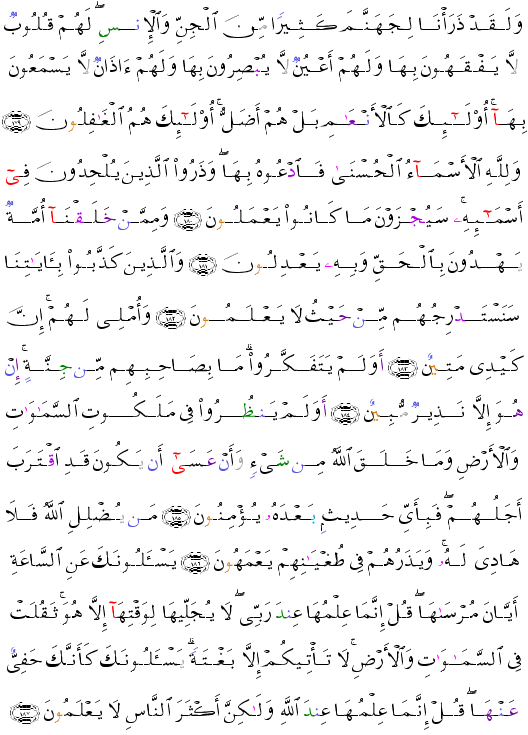 وَلَقَدْ ذَرَأْنَا لِجَهَنَّمَ كَثِيرًا مِّنَ ٱلْجِنِّ وَٱلْإِنسِ ۖ لَهُمْ قُلُوبٌ
لَّا يَفْقَهُونَ بِهَا وَلَهُمْ أَعْيُنٌ لَّا يُبْصِرُونَ بِهَا وَلَهُمْ ءَاذَانٌ لَّا يَسْمَعُونَ
بِهَآ ۚ أُو۟لَـٰٓئِكَ كَٱلْأَنْعَـٰمِ بَلْ هُمْ أَضَلُّ ۚ أُو۟لَـٰٓئِكَ هُمُ ٱلْغَـٰفِلُونَ ﴿١٧٩﴾
وَلِلَّهِ ٱلْأَسْمَآءُ ٱلْحُسْنَىٰ فَٱدْعُوهُ بِهَا ۖ وَذَرُوا۟ ٱلَّذِينَ يُلْحِدُونَ فِىٓ
أَسْمَـٰٓئِهِۦ ۚ سَيُجْزَوْنَ مَا كَانُوا۟ يَعْمَلُونَ ﴿١٨٠﴾ وَمِمَّنْ خَلَقْنَآ أُمَّةٌ
يَهْدُونَ بِٱلْحَقِّ وَبِهِۦ يَعْدِلُونَ ﴿١٨١﴾ وَٱلَّذِينَ كَذَّبُوا۟ بِـَٔايَـٰتِنَا
سَنَسْتَدْرِجُهُم مِّنْ حَيْثُ لَا يَعْلَمُونَ ﴿١٨٢﴾ وَأُمْلِى لَهُمْ ۚ إِنَّ
كَيْدِى مَتِينٌ ﴿١٨٣﴾ أَوَلَمْ يَتَفَكَّرُوا۟ ۗ مَا بِصَاحِبِهِم مِّن جِنَّةٍ ۚ إِنْ
هُوَ إِلَّا نَذِيرٌ مُّبِينٌ ﴿١٨٤﴾ أَوَلَمْ يَنظُرُوا۟ فِى مَلَكُوتِ ٱلسَّمَـٰوَٰتِ
وَٱلْأَرْضِ وَمَا خَلَقَ ٱللَّهُ مِن شَىْءٍ وَأَنْ عَسَىٰٓ أَن يَكُونَ قَدِ ٱقْتَرَبَ
أَجَلُهُمْ ۖ فَبِأَىِّ حَدِيثٍۭ بَعْدَهُۥ يُؤْمِنُونَ ﴿١٨٥﴾ مَن يُضْلِلِ ٱللَّهُ فَلَا
هَادِىَ لَهُۥ ۚ وَيَذَرُهُمْ فِى طُغْيَـٰنِهِمْ يَعْمَهُونَ ﴿١٨٦﴾ يَسْـَٔلُونَكَ عَنِ ٱلسَّاعَةِ
أَيَّانَ مُرْسَىٰهَا ۖ قُلْ إِنَّمَا عِلْمُهَا عِندَ رَبِّى ۖ لَا يُجَلِّيهَا لِوَقْتِهَآ إِلَّا هُوَ ۚ ثَقُلَتْ
فِى ٱلسَّمَـٰوَٰتِ وَٱلْأَرْضِ ۚ لَا تَأْتِيكُمْ إِلَّا بَغْتَةً ۗ يَسْـَٔلُونَكَ كَأَنَّكَ حَفِىٌّ
عَنْهَا ۖ قُلْ إِنَّمَا عِلْمُهَا عِندَ ٱللَّهِ وَلَـٰكِنَّ أَكْثَرَ ٱلنَّاسِ لَا يَعْلَمُونَ ﴿١٨٧﴾